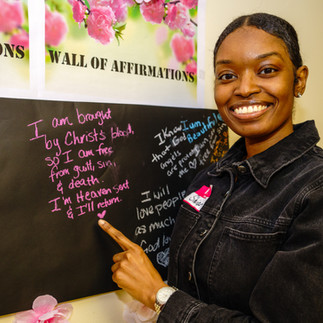 WALL OF AFFIRMATIONS
I am brought
by Christ's blood,
so I am free
from guilt, sin,
& death.
I'm Heaven sent
& I'll return
I know I am
beautiful
I will
love people
as much
God lov